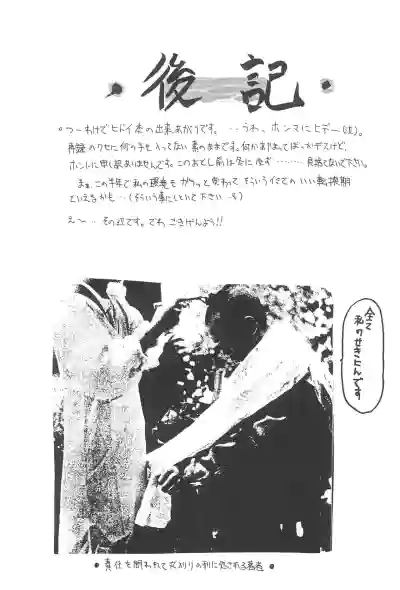 後記
つーわけでヒドイ本の出来あがりです。…うわ、ホンマにヒデー(泣)。
再録のクセに何の手も入ってない素のままです。何かあやまってばっかデスけど、
ホントに申し訳ありませんです。このおとし前は冬に必ず………見捨てないで下さい。
まぁ、この半年で私の環境もガラッと変わって そういうイミでの いい転換期
といえるかも…(そういう事にしといて下さい
え〜…その辺です。でわ ごきげんよう!!
全て
私のせきにんです
責任を問われて